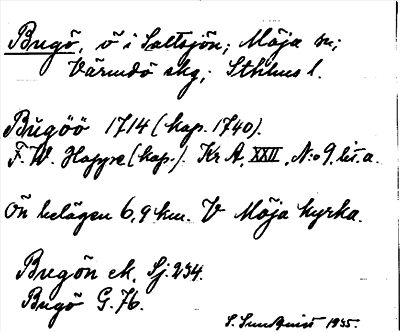 Bugö, ö i Saltsjön; Möja sn;
Värmdö skg; Sthlms l.
Bugöö 1714 (kop. 1740).
F. W. Hoppe (kop.). Kr A, XXII, N:o 9, lit. a.
Ön belägen 6,9 km. V Möja kyrka.
Bugön ek. Sj. 234.
Bugö G. 76.
S. Sundquist 1935.